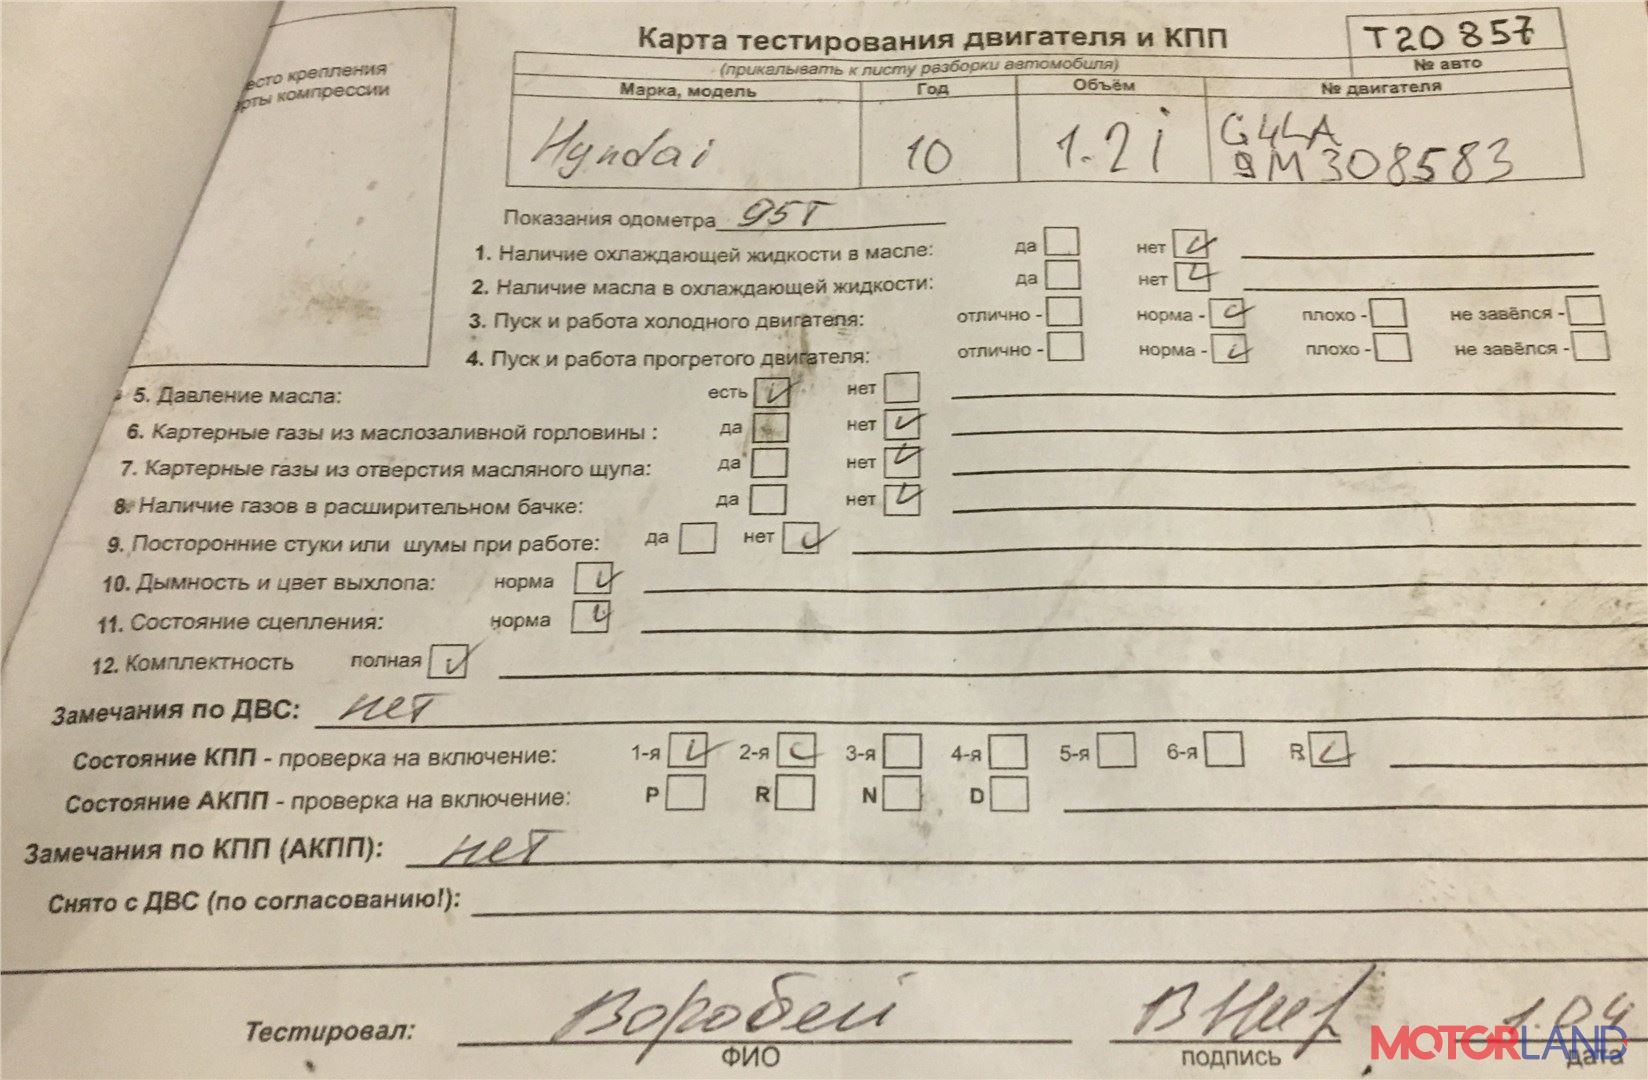 есто крепления
рты компрессии
Карта тестирования двигателя и КПП
T20857
№ авто
(прикалывать к листу разборки автомобиля)
Марка, модель Год Объём № двигателя
Hyndai 10 1.2i G4LA
9M308583
Показания одометра 95T
1. Наличие охлаждающей жидкости в масле: да нет
2. Наличие масла в охлаждающей жидкости: да нет
3. Пуск и работа холодного двигателя: отлично - норма - плохо - не завёлся -
4. Пуск и работа прогретого двигателя: отлично - норма - плохо - не завёлся -
5. Давление масла: есть нет
6. Картерные газы из маслозаливной горловины : да нет
7. Картерные газы из отверстия масляного щупа: да нет
8. Наличие газов в расширительном бачке: да нет
9. Посторонние стуки или шумы при работе: да нет
10. Дымность и цвет выхлопа: норма
11. Состояние сцепления: норма
12. Комплектность полная
Замечания по ДВС: нет
Состояние КПП - проверка на включение: 1-я 2-я 3-я 4-я 5-я 6-я R
Состояние АКПП - проверка на включение: P R N D
Замечания по КПП (АКПП): нет
Снято с ДВС (по согласованию!):
Тестировал: Воробей 1.04
ФИО подпись дата
MOTORLAND